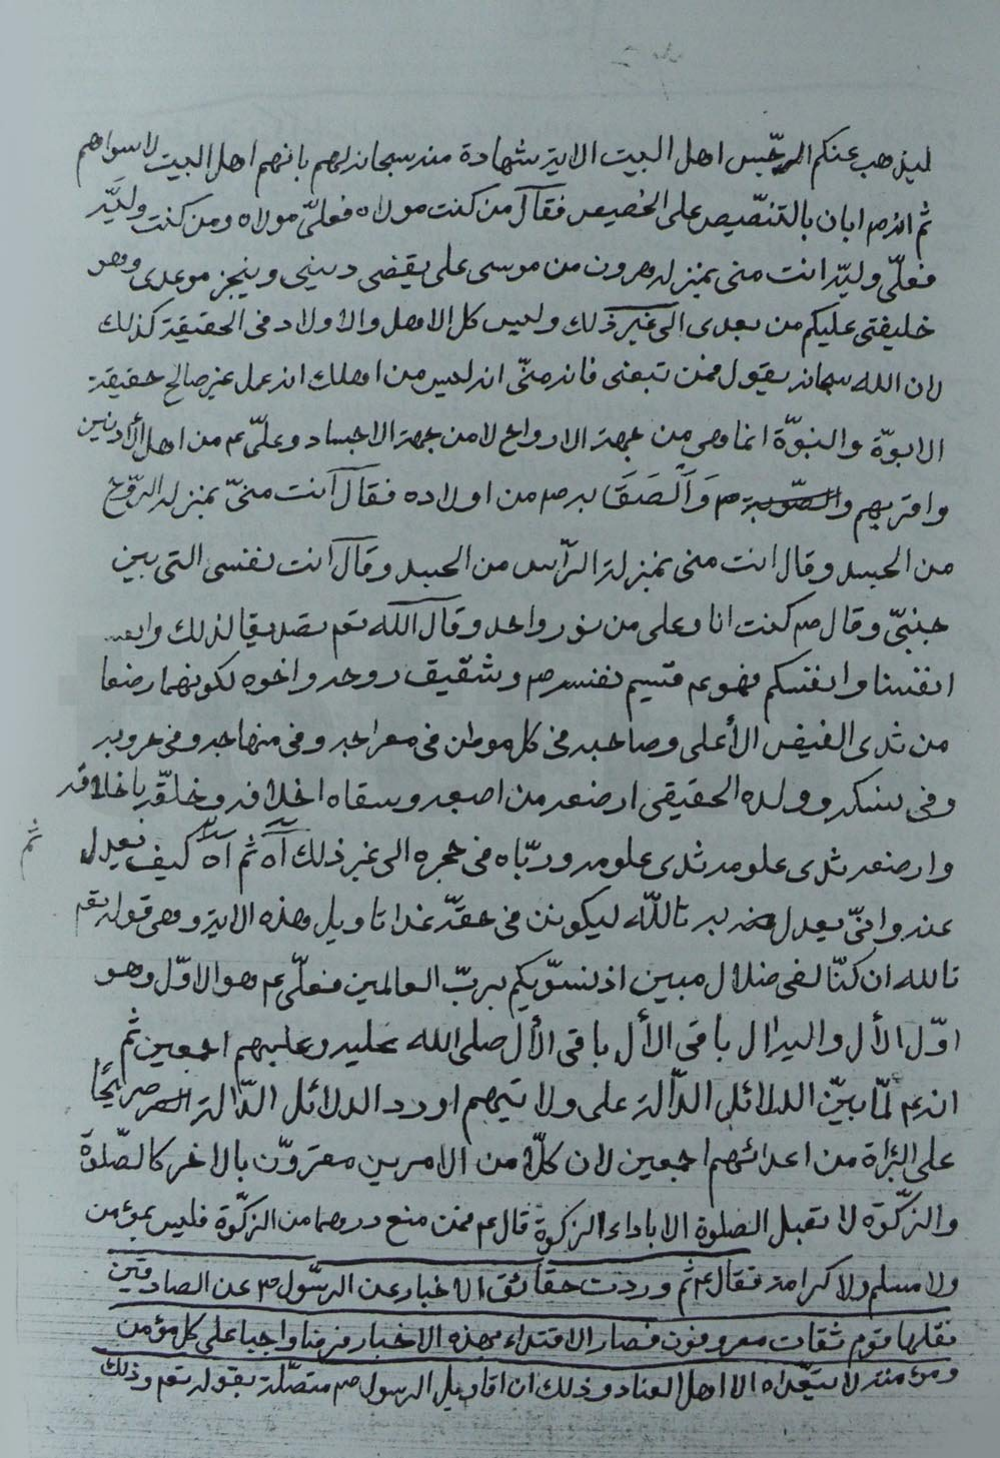 ليذهب عنكم الرجس اهل البيت الاية شهادة منه سبحانه لهم بانهم اهل البيت لا سواهم
ثم انه ص ابان بالتنصيص على الخصيص فقال من كنت مولاه فعليّ مولاه ومن كنت وليّه
فعليّ وليّه انت مني بمنزلة هرون من موسى علي يقضى دينى وينجز موعدى وهو
خليفتى عليكم من بعدى الى غير ذلك وليس كل الاهل والاولاد فى الحقيقة كذلك
لان الله سبحانه يقول فمن تبعنى فانه منّى انه ليس من اهلك انه عمل غير صالح حقيقة
الابوّة والنبوّة انما هى من جهة الارواح لا من جهة الاجساد وعليّ ع من اهل الأدنين
واقربهم والصق به ص من اولاده فقال انت منىّ بمنزلة الرّوح
من الجسد وقال انت منى بمنزلة الرّأس من الجسد وقال انت نفسى التى بين
جنبىّ وقال ص كنت انا وعلى من نور واحد وقال الله تعم تصديقا لذلك
انفسنا وانفسكم فهو ع قسيم نفسه ص وشقيق روحه واخوه لكونهما رضعا
من ثدى الفيض الأعلى وصاحبه فى كل موطن فى معراجه وفى منهاجه وفى حروبه
وفى وولده الحقيقى ارضعه من اصبعه وسقاه اخلافه وخلّقه باخلاقه
وارضعه ثدى علومه ثدى علومه وربّاه فى حجره الى غير ذلك آه ثم آه كيف يعدل
ثم
عنه وانّى يعدل به تالله ليكونن فى حقه غدا تاويل هذه الاية وهى قوله تعم
تالله ان كنّا لفى ضلال مبين اذ نسوّيكم بربّ العالمين فعلّى ع هو الاوّل وهو
اوّل الأل واليه ال باقى الأل باقى الأل صلى الله عليه وعليهم اجمعين ثم
انه ع لمّا بيّن الدلائل الدّالة على ولايتهم اورد الدلائل الدّالة صريحًا
على البرأة من اعدائهم اجمعين لان كلّا من الامرين مقروّن بالاخر كالصّلوة
والزكّوة لا تقبل الصلوة الا باداء الزكوة قال ع فمن منع درهما من الزكّوة فليس بمؤمن
ولا مسلم ولا كرامة فقال ع ثم وردت حقائق الاخبار عن الرسّول ص عن الصادقين
نقلها قوم ثقات معروفون فصار الاقتداء بهذه الاخبار فرضا واجبا على كل مؤمن
ومؤمنة لا يتعدّاه الا اهل العناد وذلك ان اقاويل الرسول ص متصّلة بقوله تعم وذلك